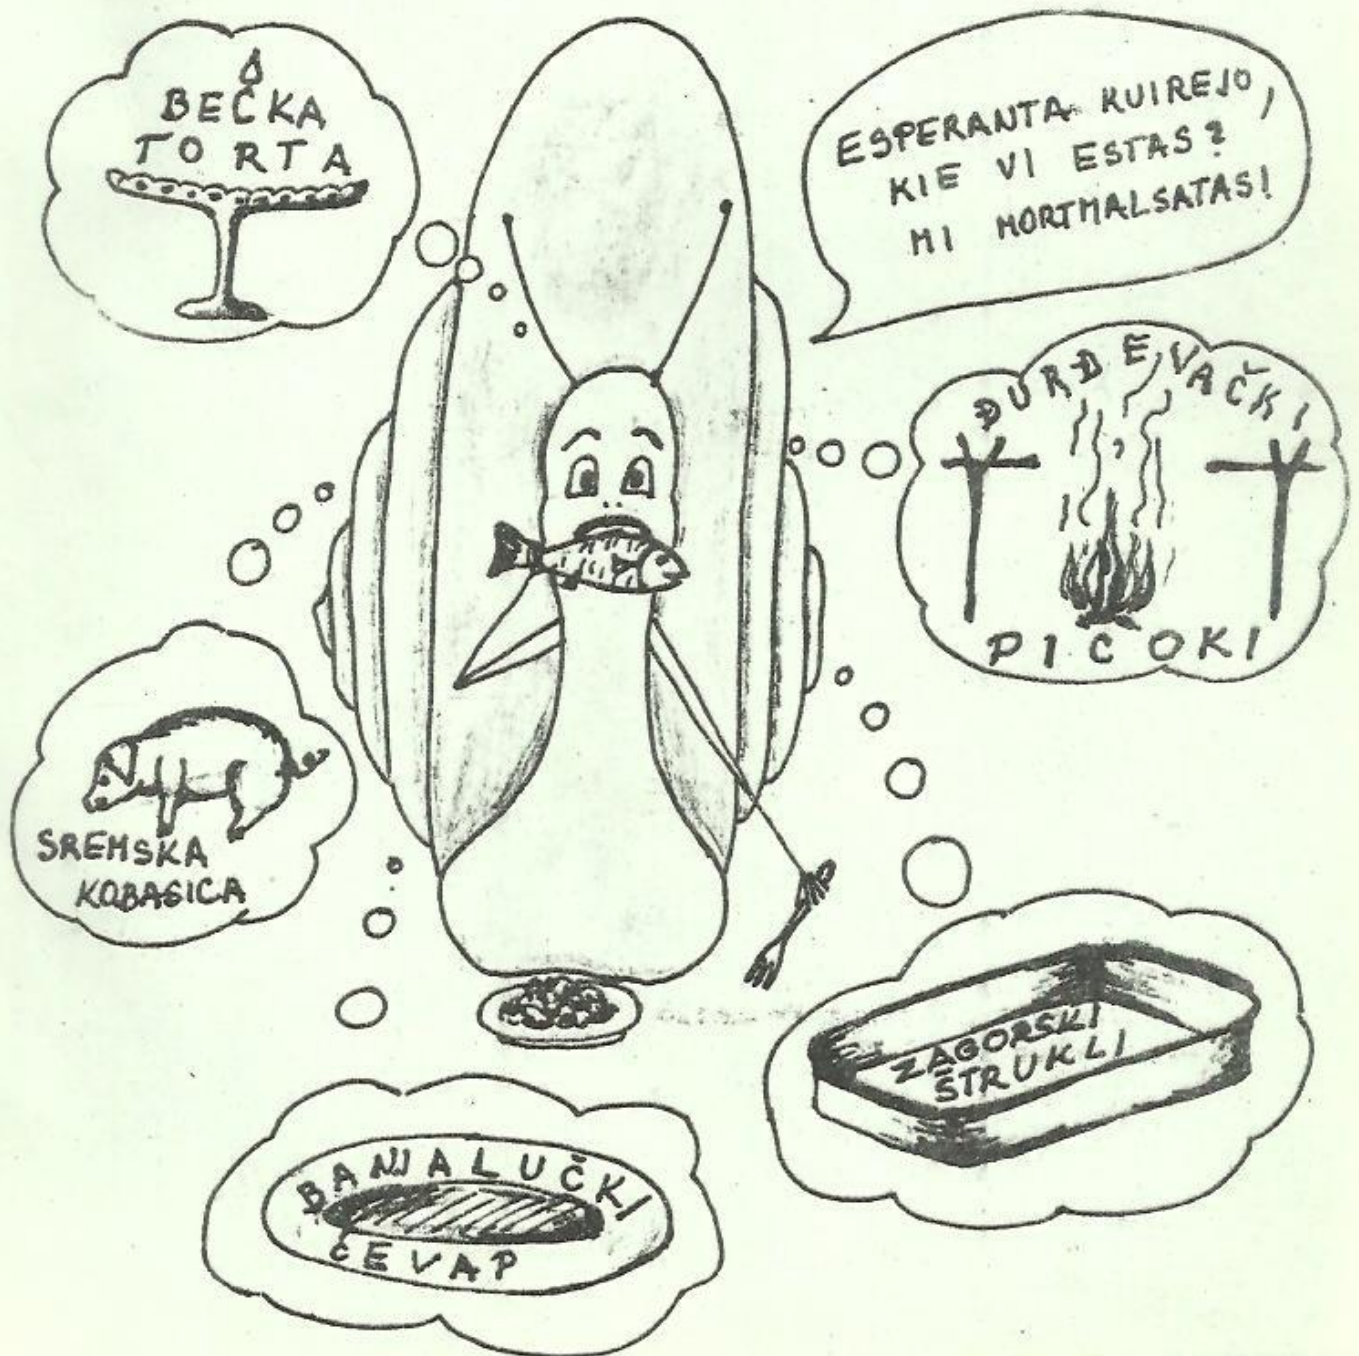 BEČKA
TORTA
ESPERANTA KUIREJO,
KIE VI ESTAS?
MI MORTMALSATAS!
ĐURĐEVAČKI
PICOKI
SREMSKA
KOBASICA
ZAGORSKI
ŠTRUKLI
BANJALUČKI
ĆEVAP